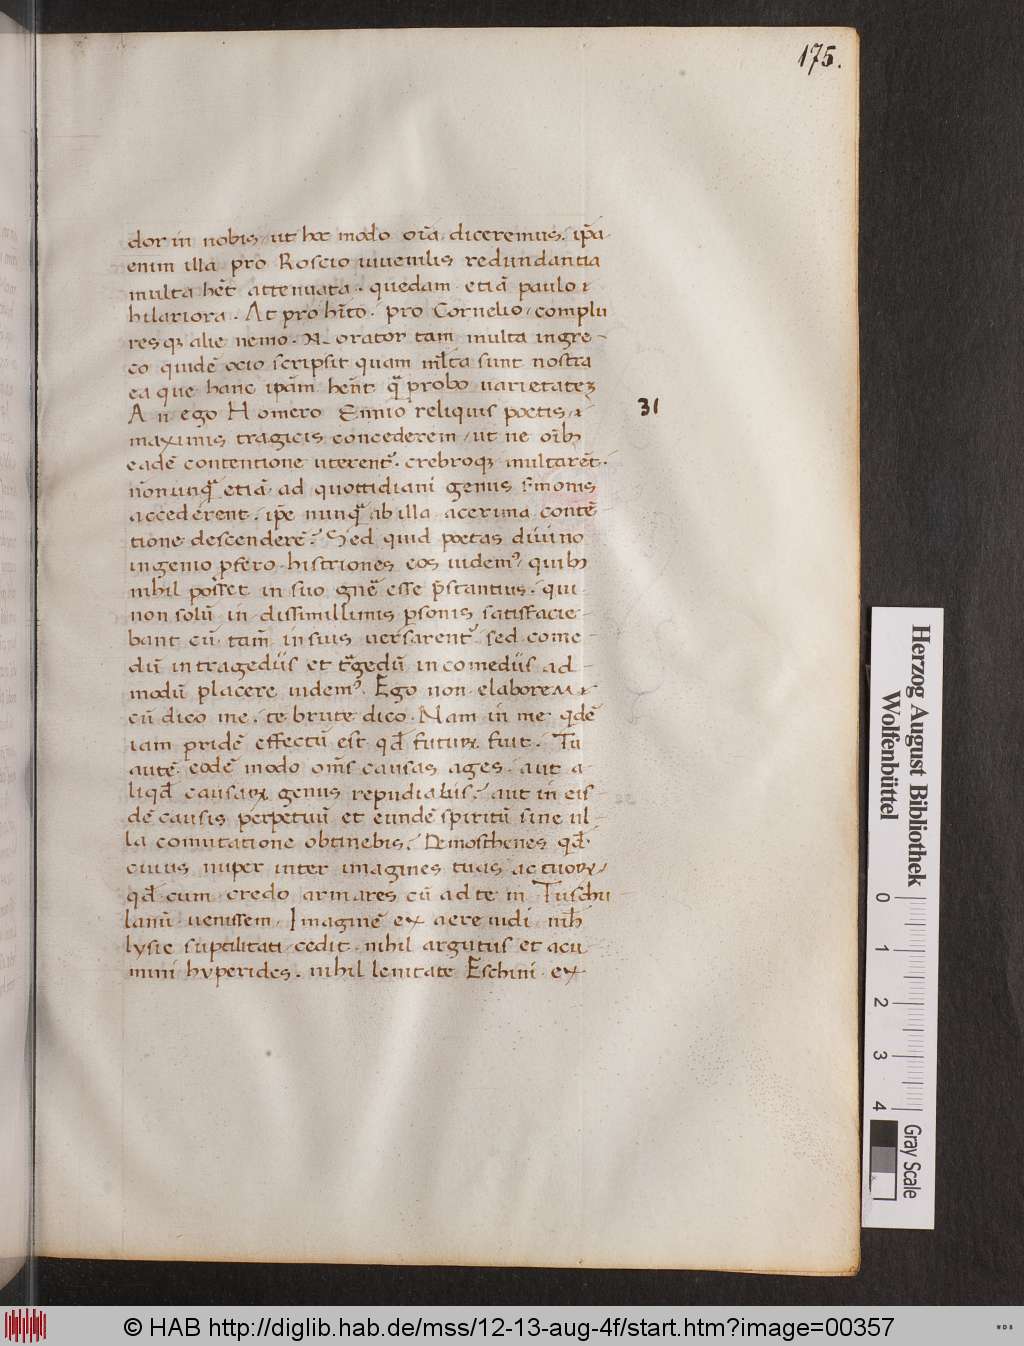 175.
dor in nobis, ut hoc modo oīa diceremus. ip̄a
enim illa pro Roscio iuvenilis redundantia
multa hēt attenuata. quedam etiā paulo &
hilariora. At pro hīto. pro Cornelio, complu
resq; alie nemo. N. orator tam multa in gre-
co quidē ocio scripsit quam ml̄ta sunt nostra
ea que hanc ip̄am hēnt quā probo varietatez
An ego Homero Ennio reliquis poetis, &
maximis tragicis concederem, ut ne oīb;
eadē contentione uterent᷑. crebroq; mutarēt.
nōnunquā etiā ad quottidiani genus s̄monis
accederent. ip̄e nunquā ab illa acerima contē-
tione descenderē? Sed quid poetas divino
ingenio p̄fero. histriones eos videm᷒, quib;
nihil posset in suo gnē esse p̄stantius. qui
non solū in dissimillimis p̄sonis satisfacie-
bant cū tam̄ in suis versarent᷑ sed come-
dū in tragediis et tᷓgedū in comediis ad-
modū placere videm᷒. Ego non elaborem &
cū dico me. te brute dico. Nam in me q̇dē
iam pridē effectū est qd̄ futuꝝ fuit. Tu
autē eodē modo om̄s causas ages. aut a-
liqd̄ causaꝝ genus repudiabis? aut in eis-
dē causis perpetuū et eundē spiritū sine ul-
la comutatione obtinebis? Demosthenes qd̄
cuius nuper inter imagines tuas, ac tuoꝝ,
qd̄ eum credo amares cū ad te in Tuschu-
lanū venissem. Imaginē ex aere vidi. nih̄
lysie suptilitati cedit. nihil argutiis et acu-
mini hyperides. nihil lenitate Eschini. ex
31
Herzog August Bibliothek
Wolfenbüttel
0 1 2 3 4
Gray Scale
© HAB http://diglib.hab.de/mss/12-13-aug-4f/start.htm?image=00357